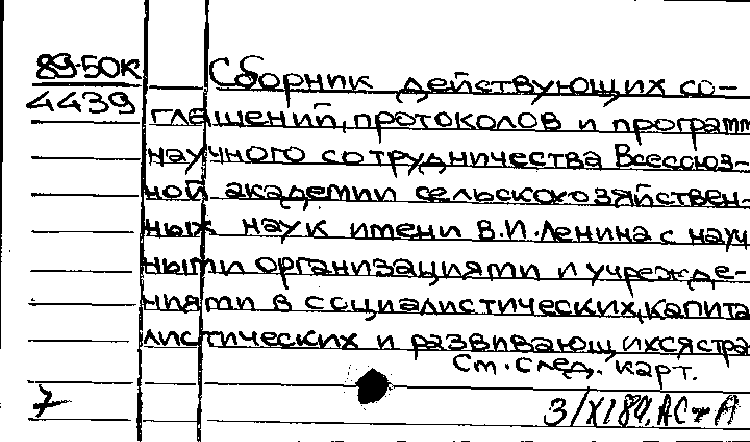 89-50к Сборник действующих со-
4439 глашений, протоколов и программ
научного сотрудничества Всесоюз-
ной академии сельскохозяйствен-
ных наук имени В.И.Ленина с науч
ными организациями и учрежде-
ниями в социалистических, капита
листических и развивающихся стра
См. след. карт.
7 3/XI89. АС-А